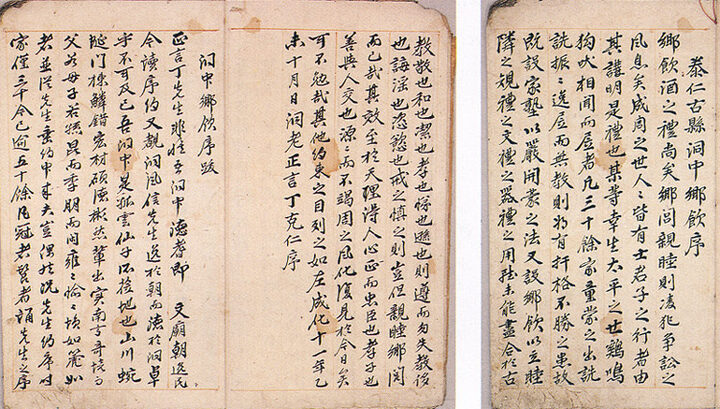 泰仁古縣洞中鄕飮序
鄕飮酒之禮尙矣鄕閭親睦則凌犯爭訟之
風息矣成周之世人〻皆有士君子之行者由
其講明是禮也某等幸生太平之世鷄鳴
狗吠相聞而居者凡三十餘家童蒙之出詵
詵振〻逸居而無敎則將有扞格不勝之患故
旣設家塾以嚴開蒙之法又設鄕飮以立睦
隣之規禮之文禮之器禮之用雖未能盡合於古
敎敬也和也潔也孝也悌也遜也則遵而勿失敎後
也謟淫也恣慾也戒之愼之則豈但親睦鄕閭
而已哉其效至於天理得人心正而忠臣也孝子也
善與人交也源〻而不竭周之風化復見於今日矣
可不勉哉其他約束之目列之如左成化十一年乙
未十月日洞老正言丁克仁序
洞中鄕飮序跋
正言丁先生非恒吾洞中德者卽 文廟朝逸民
今讀序約又觀洞風信先生逸於朝而德於洞卓
乎不可及已吾洞中是孤雲仙子不捨地也山川蜿
門棟鱗錯宏材碩德彬然輩出實南方奇境而
父父母子若孫昆而季朋而間雍〻愉〻塤如箎如
者並從先生垂約中來夫豈偶然況先生約序時
家僅三十今已逾五十餘凡冠者髦者誦先生之序